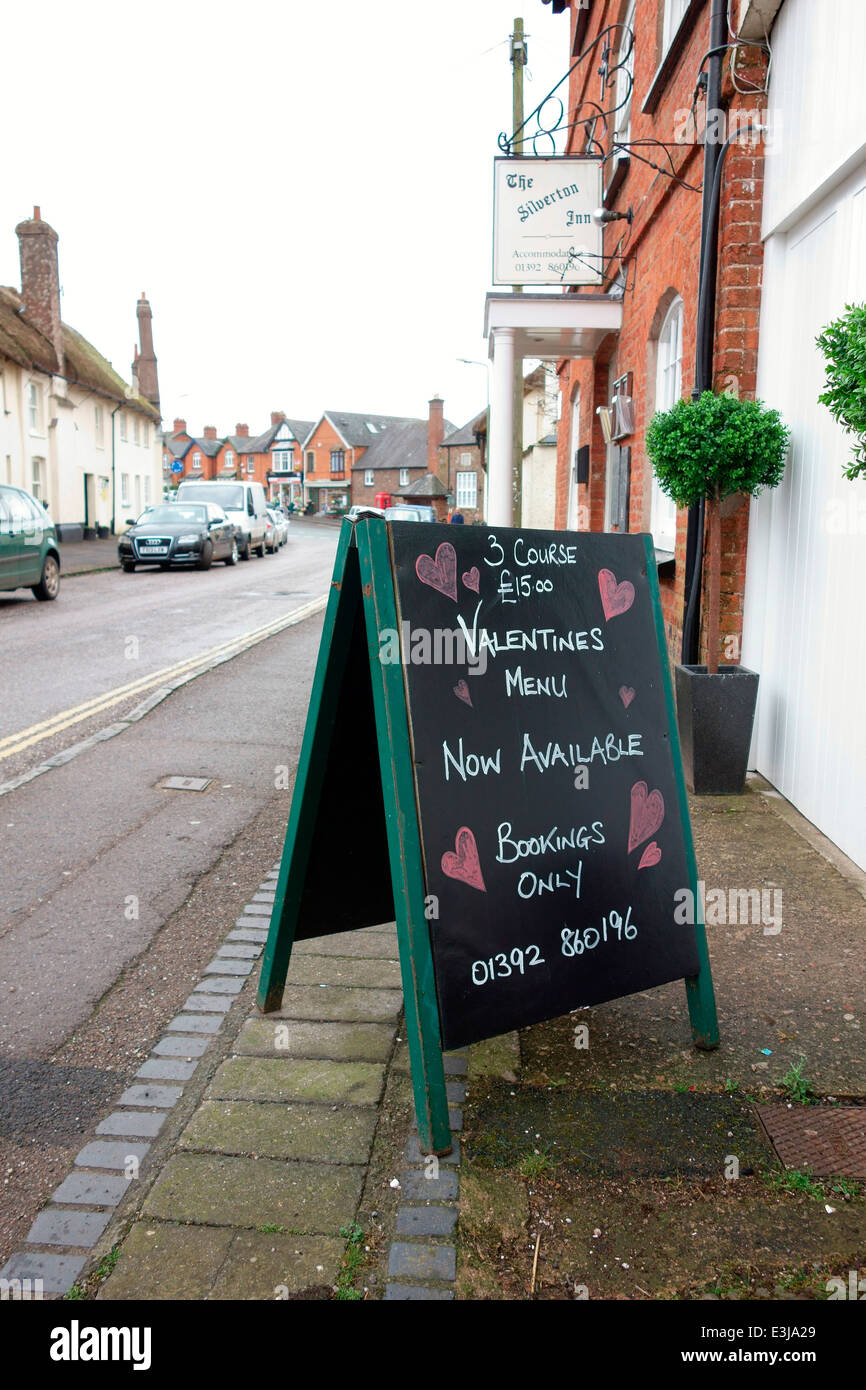 The
Silverton
Inn
Accommodation
01392 860196
3 COURSE
£15.00
VALENTINES
MENU
NOW AVAILABLE
BOOKINGS
ONLY
01392 860196
alamy
Image ID: E3JA29
www.alamy.com